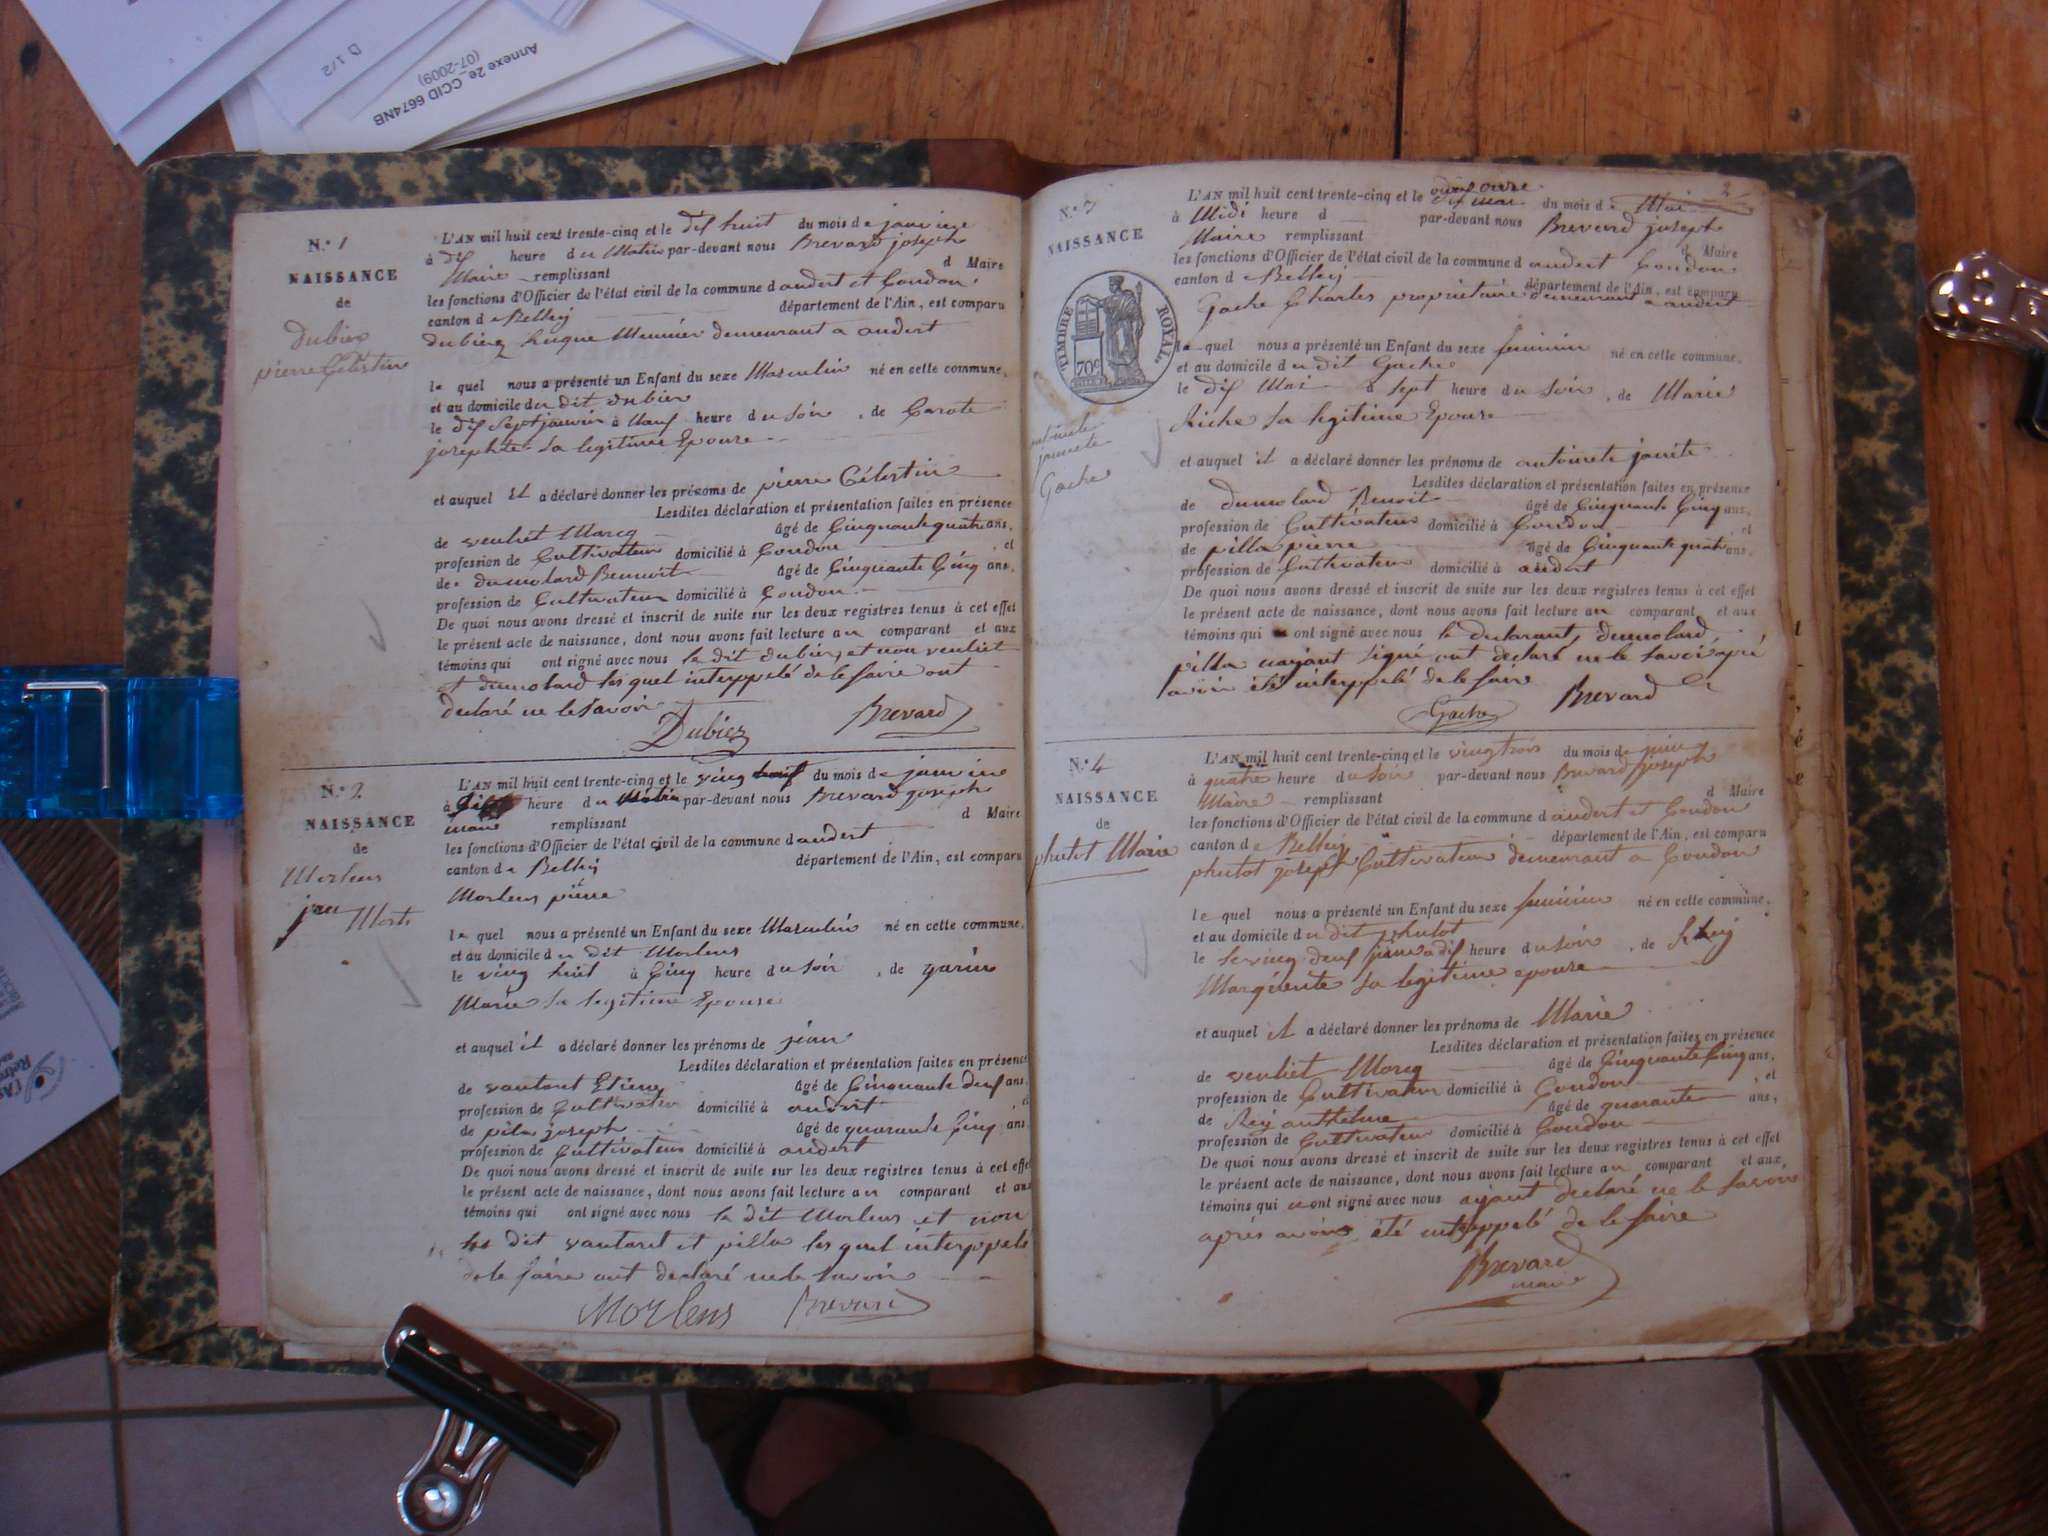 D 1/2
Annexe 2e_CCID 6674NB
(07-2009)
N.º 1
NAISSANCE
de
Dubiez
pierre Célestin
L'AN mil huit cent trente-cinq et le dix huit du mois de janvier
à dix heure du Matin par-devant nous Brevard joseph
Maire remplissant d Maire
les fonctions d'Officier de l'état civil de la commune d andert et Condon
canton de Belley département de l'Ain, est comparu
dubiez hugue Meunier demeurant a andert
le quel nous a présenté un Enfant du sexe Masculin né en cette commune,
et au domicile du dit dubiez
le dix Sept janvier à Neuf heure du Soir, de Carote
josephte Sa legitime Epouse
et auquel il a déclaré donner les prénoms de pierre Célestin
Lesdites déclaration et présentation faites en présence
de veuliet Marcq âgé de Cinquante quatre ans,
profession de Cultivateur domicilié à Condon, et
de dumolard Bennoit âgé de Cinquante Cinq ans,
profession de Cultivateur domicilié à Condon
De quoi nous avons dressé et inscrit de suite sur les deux registres tenus à cet effet
le présent acte de naissance, dont nous avons fait lecture au comparant et aux
témoins qui ont signé avec nous le dit dubiez, et non veuliet
et dumolard les quel interppelé de le faire ont
declaré ne le savoir
Dubiez Brevard
N.º 2
NAISSANCE
de
Morlens
jean
Morts
L'AN mil huit cent trente-cinq et le ving du mois de janvier
à heure du par-devant nous Brevard joseph
maire remplissant d Maire
les fonctions d'Officier de l'état civil de la commune d andert
canton de Belley département de l'Ain, est comparu
Morlens pierre
le quel nous a présenté un Enfant du sexe Masculin né en cette commune,
et au domicile du dit Morlens
le ving huit à Cinq heure du Soir, de garin
Marie Sa legitime Epouse
et auquel il a déclaré donner les prénoms de jean
Lesdites déclaration et présentation faites en présence
de vautaret Etienne âgé de Cinquante deux ans,
profession de Cultivateur domicilié à andert et
de pila joseph âgé de quarante Cinq ans
profession de Cultivateur domicilié à andert
De quoi nous avons dressé et inscrit de suite sur les deux registres tenus à cet effet
le présent acte de naissance, dont nous avons fait lecture au comparant et aux
témoins qui ont signé avec nous le dit Morlens et non
les dit vautaret et pilla les quel interppelé
de le faire ont declaré ne le savoir
Morlens Brevard
2
N.º 3
NAISSANCE
TIMBRE ROYAL
70c
jannete
Gache
L'AN mil huit cent trente-cinq et le onze du mois de Mai
à Midi heure d par-devant nous Brevard joseph
Maire remplissant d Maire
les fonctions d'Officier de l'état civil de la commune d andert Condon
canton de Belley département de l'Ain, est comparu
Gache Charles propriétaire demeurant a andert
le quel nous a présenté un Enfant du sexe feminin né en cette commune,
et au domicile du dit Gache
le dix Mai à Sept heure du Soir, de Marie
Riche Sa legitime Epouse
et auquel il a déclaré donner les prénoms de antoinete janite
Lesdites déclaration et présentation faites en présence
de dumolard Benoit âgé de Cinquante Cinq ans,
profession de Cultivateur domicilié à Condon et
de pilla pierre âgé de Cinquante quatre ans,
profession de Cultivateur domicilié à andert
De quoi nous avons dressé et inscrit de suite sur les deux registres tenus à cet effet
le présent acte de naissance, dont nous avons fait lecture au comparant et aux
témoins qui ont signé avec nous le declarant, dumolard,
pilla nayant signé ont declaré ne le savoir apré
avoir été interppelé de le faire Brevard
Gache
N.º 4
NAISSANCE
de
phutot Marie
L'AN mil huit cent trente-cinq et le vingtrois du mois de juin
à quatre heure du Soir par-devant nous Brevard joseph
Maire remplissant d Maire
les fonctions d'Officier de l'état civil de la commune d andert et Condon
canton de Belley département de l'Ain, est comparu
phutot joseph Cultivateur demeurant a Condon
le quel nous a présenté un Enfant du sexe feminin né en cette commune,
et au domicile du dit phutot
le ving deux juin à dix heure du Soir, de
Marguerite Sa legitime epouse
et auquel il a déclaré donner les prénoms de Marie
Lesdites déclaration et présentation faites en présence
de veuliet Marcq âgé de Cinquante Cinq ans,
profession de Cultivateur domicilié à Condon, et
de Rey anthelme âgé de quarante ans,
profession de Cultivateur domicilié à Condon
De quoi nous avons dressé et inscrit de suite sur les deux registres tenus à cet effet
le présent acte de naissance, dont nous avons fait lecture au comparant et aux,
témoins qui nont signé avec nous ayant declaré ne le savoir
aprés avoir été interppelé de le faire
Brevard
maire